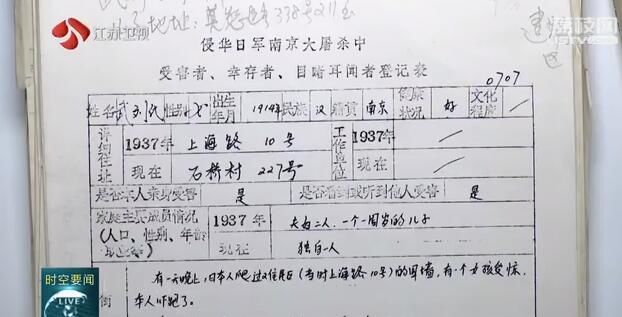 江苏卫视
荔枝网
侵华日军南京大屠杀中
受害者、幸存者、目睹耳闻者登记表
0707
姓名 武刘氏 性别 女 出生年月 1914年 民族 汉 籍贯 南京 健康状况 好 文化程度 /
详细住址 1937年 上海路 10号 工作单位 1937年 /
现在 石桥村 227号 现在 /
是否本人亲身受害 是 是否看到或听到他人受害 /
家庭主要成员情况 1937年 夫妇二人，一个一周岁的儿子
(人口、性别、年龄 现在 独自一人
有一天晚上，日本人爬过住房(当时上海路10号)的围墙，有一个女孩受惊，
本人吓跑了。
时空要闻
LIVE